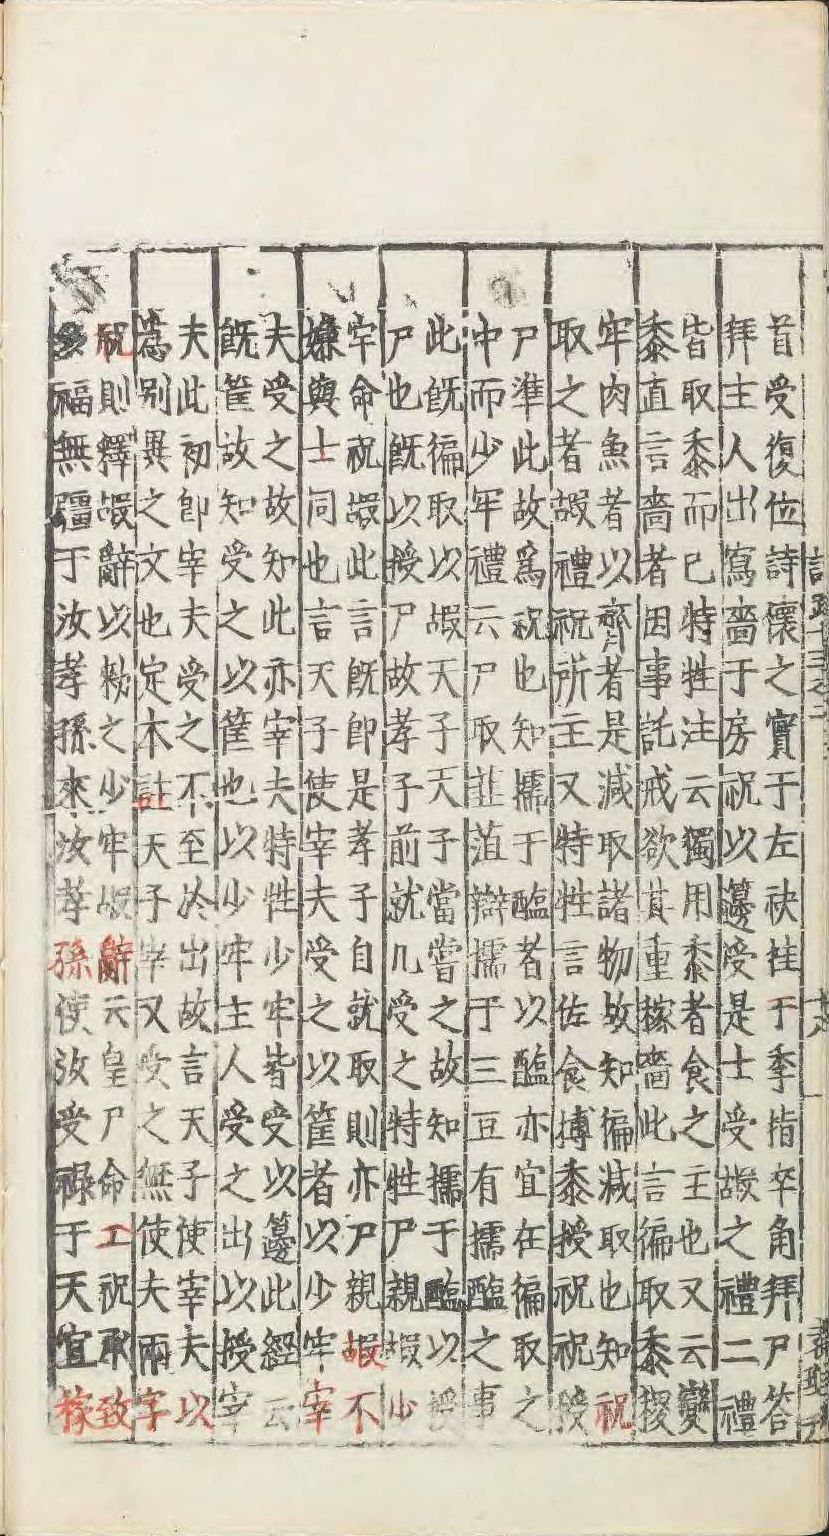 首受復位詩懷之實于左袂挂于季指卒角拜尸答
拜主人出寫嗇于房祝以籩受是士受嘏之禮二禮
皆取黍而已特牲注云獨用黍者食之主也又云變
黍直言嗇者因事託戒欲其重稼嗇此言徧取黍稷
牢肉魚者以齊者是減取諸物故知徧減取也知祝
取之者嘏禮祝所主又特牲言佐食摶黍授祝祝授
尸準此故爲祝也知擩于醢者以醢亦宜在徧取之
中而少牢禮云尸取韭菹辯擩于三豆有擩醢之事
此旣徧取以嘏天子天子當嘗之故知擩于醢以授
尸也旣以授尸故孝子前就几受之特牲尸親嘏少
牢命祝嘏此言旣卽是孝子自就取則亦尸親嘏不
嫌與士同也言天子使宰夫受之以筐者以少牢宰
夫受之故知此亦宰夫特牲少牢皆受以籩此經云
旣筐故知受之以筐也以少牢主人受之出以授宰
夫此初卽宰夫受之不至於出故言天子使宰夫以
爲别異之文也定本註天子宰又受之無使夫兩字
祝則釋嘏辭以勑之少牢嘏辭云皇尸命工祝承致
多福無疆于汝孝孫來汝孝孫使汝受祿于天宜稼